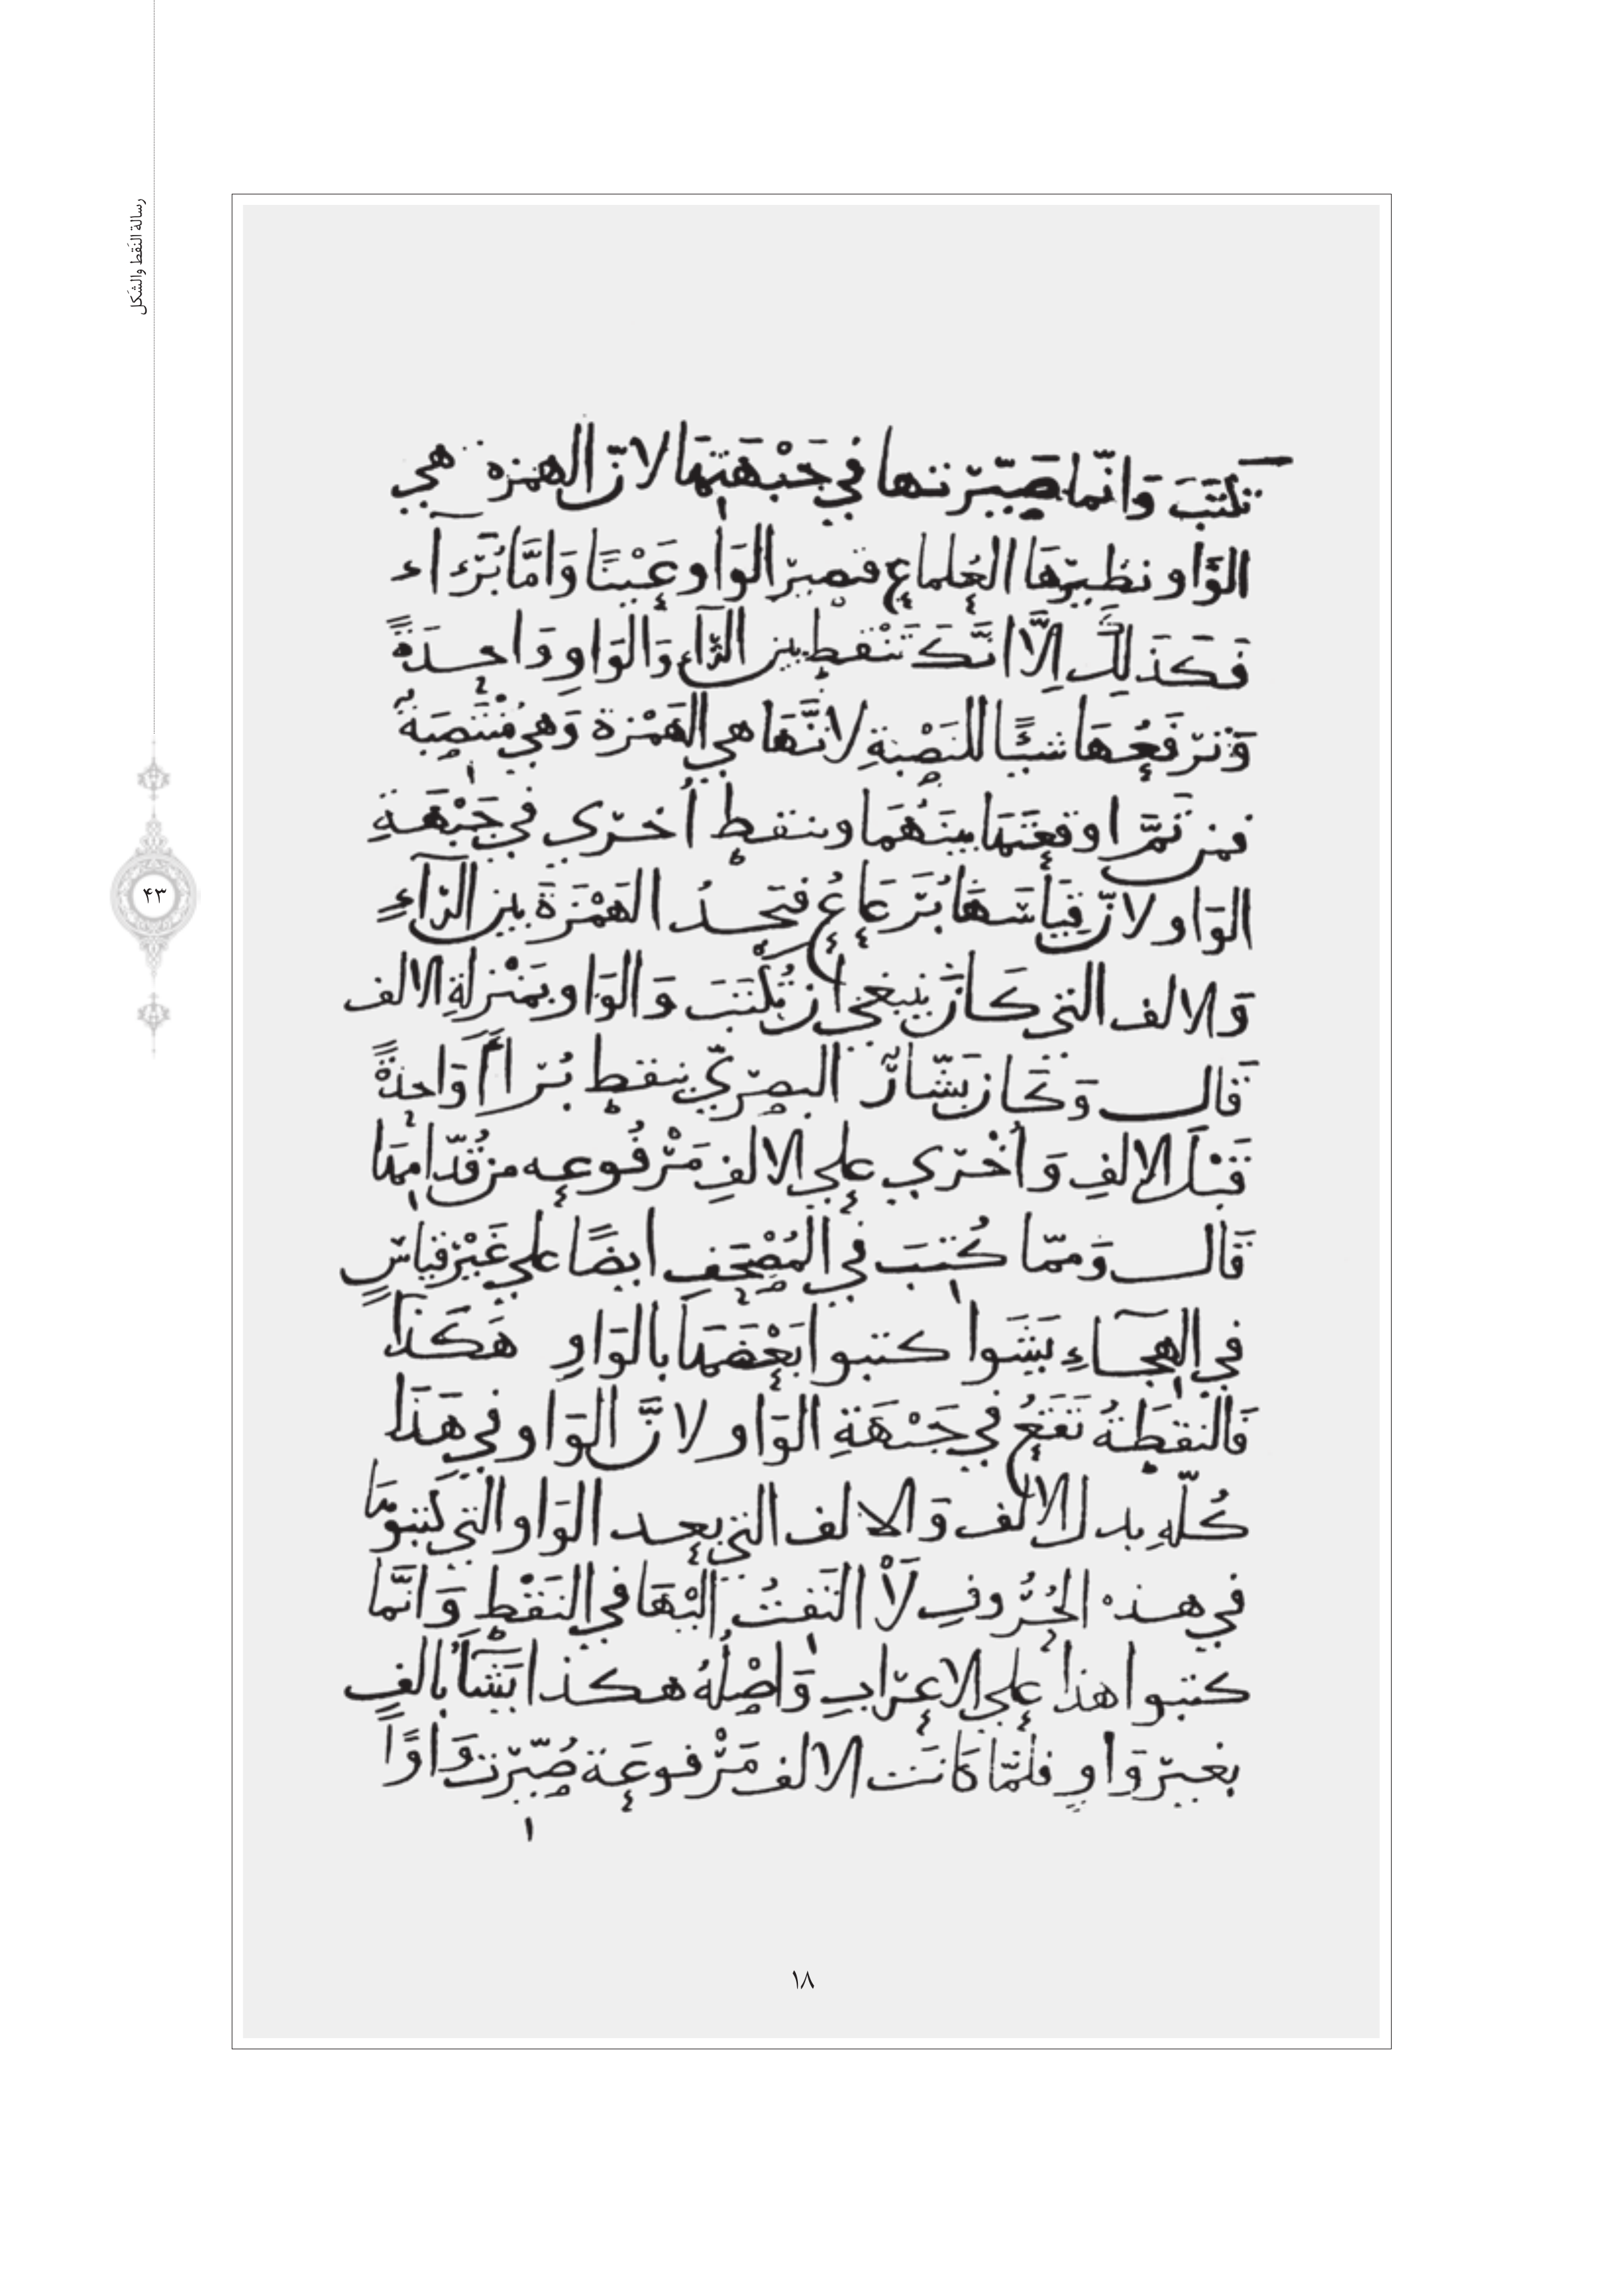 رسالة النَقط والشَكل
۴۳
تُكتَبَ وَانّما صَيّرتها في جَبْهَتِها لانّ الهمزة هي
الوَاو نظيرَها العُلماع فصير الوَاو عَيْنًا وَامَّا بُرَءآء
فَكَذَلِكَ اِلَّا انَّكَ تَنْقط بين الرَّاء وَالوَاوِ وَاحِدَةً
وَترَفَعُهَا شيئًا للنَصْبةِ لانَّهَا هي الهَمْزة وَهي مُنتَصِبة
فمن ثَمَّ اوقعتَها بينَهُمَا وينقط أخرَي في جَبْهَةِ
الوَاو لانّ قِيَاسَهَا بُرَعَاعُ فتَجِدُ الهَمْزَةَ بين الرّآءِ
وَالالف التي كَانَ ينبغي ان تُكْتَبَ وَالوَاو بمَنْزلةِ الالف
قَالَ وَكَانَ بَشّارٌ البصريّ ينقط بُرَآ وَاحدَةً
قَبْلَ الالفِ وَأخْرَي علي الالفِ مَرْفُوعه من قُدّامِهَا
قَالَ وَممّا كُتبَ في المُصْحَف ايضًا علي غَيْر قياسٍ
في الهِجَاءِ يَشَوا كتبوا بَعْضَهَا بالوَاوِ هَكَذَا
فَالنقطَةُ تَقَعُ في جَبْهَةِ الوَاو لانَّ الوَاو في هَذَا
كُلّهِ بدل الالف وَالالف التي بعد الوَاو التي كتبوهَا
في هذه الحُرُوفِ لَا التَفتُ اِليْهَا في النَقْط وَانَّمَا
كتبوا هذا علي الاعرَابِ وَاصْلُهُ هكذا يَشَأ بالفٍ
بغير وَاوٍ فلمّا كَانَت الالف مَرْفوعَة صُيّرت وَاوًا
١٨